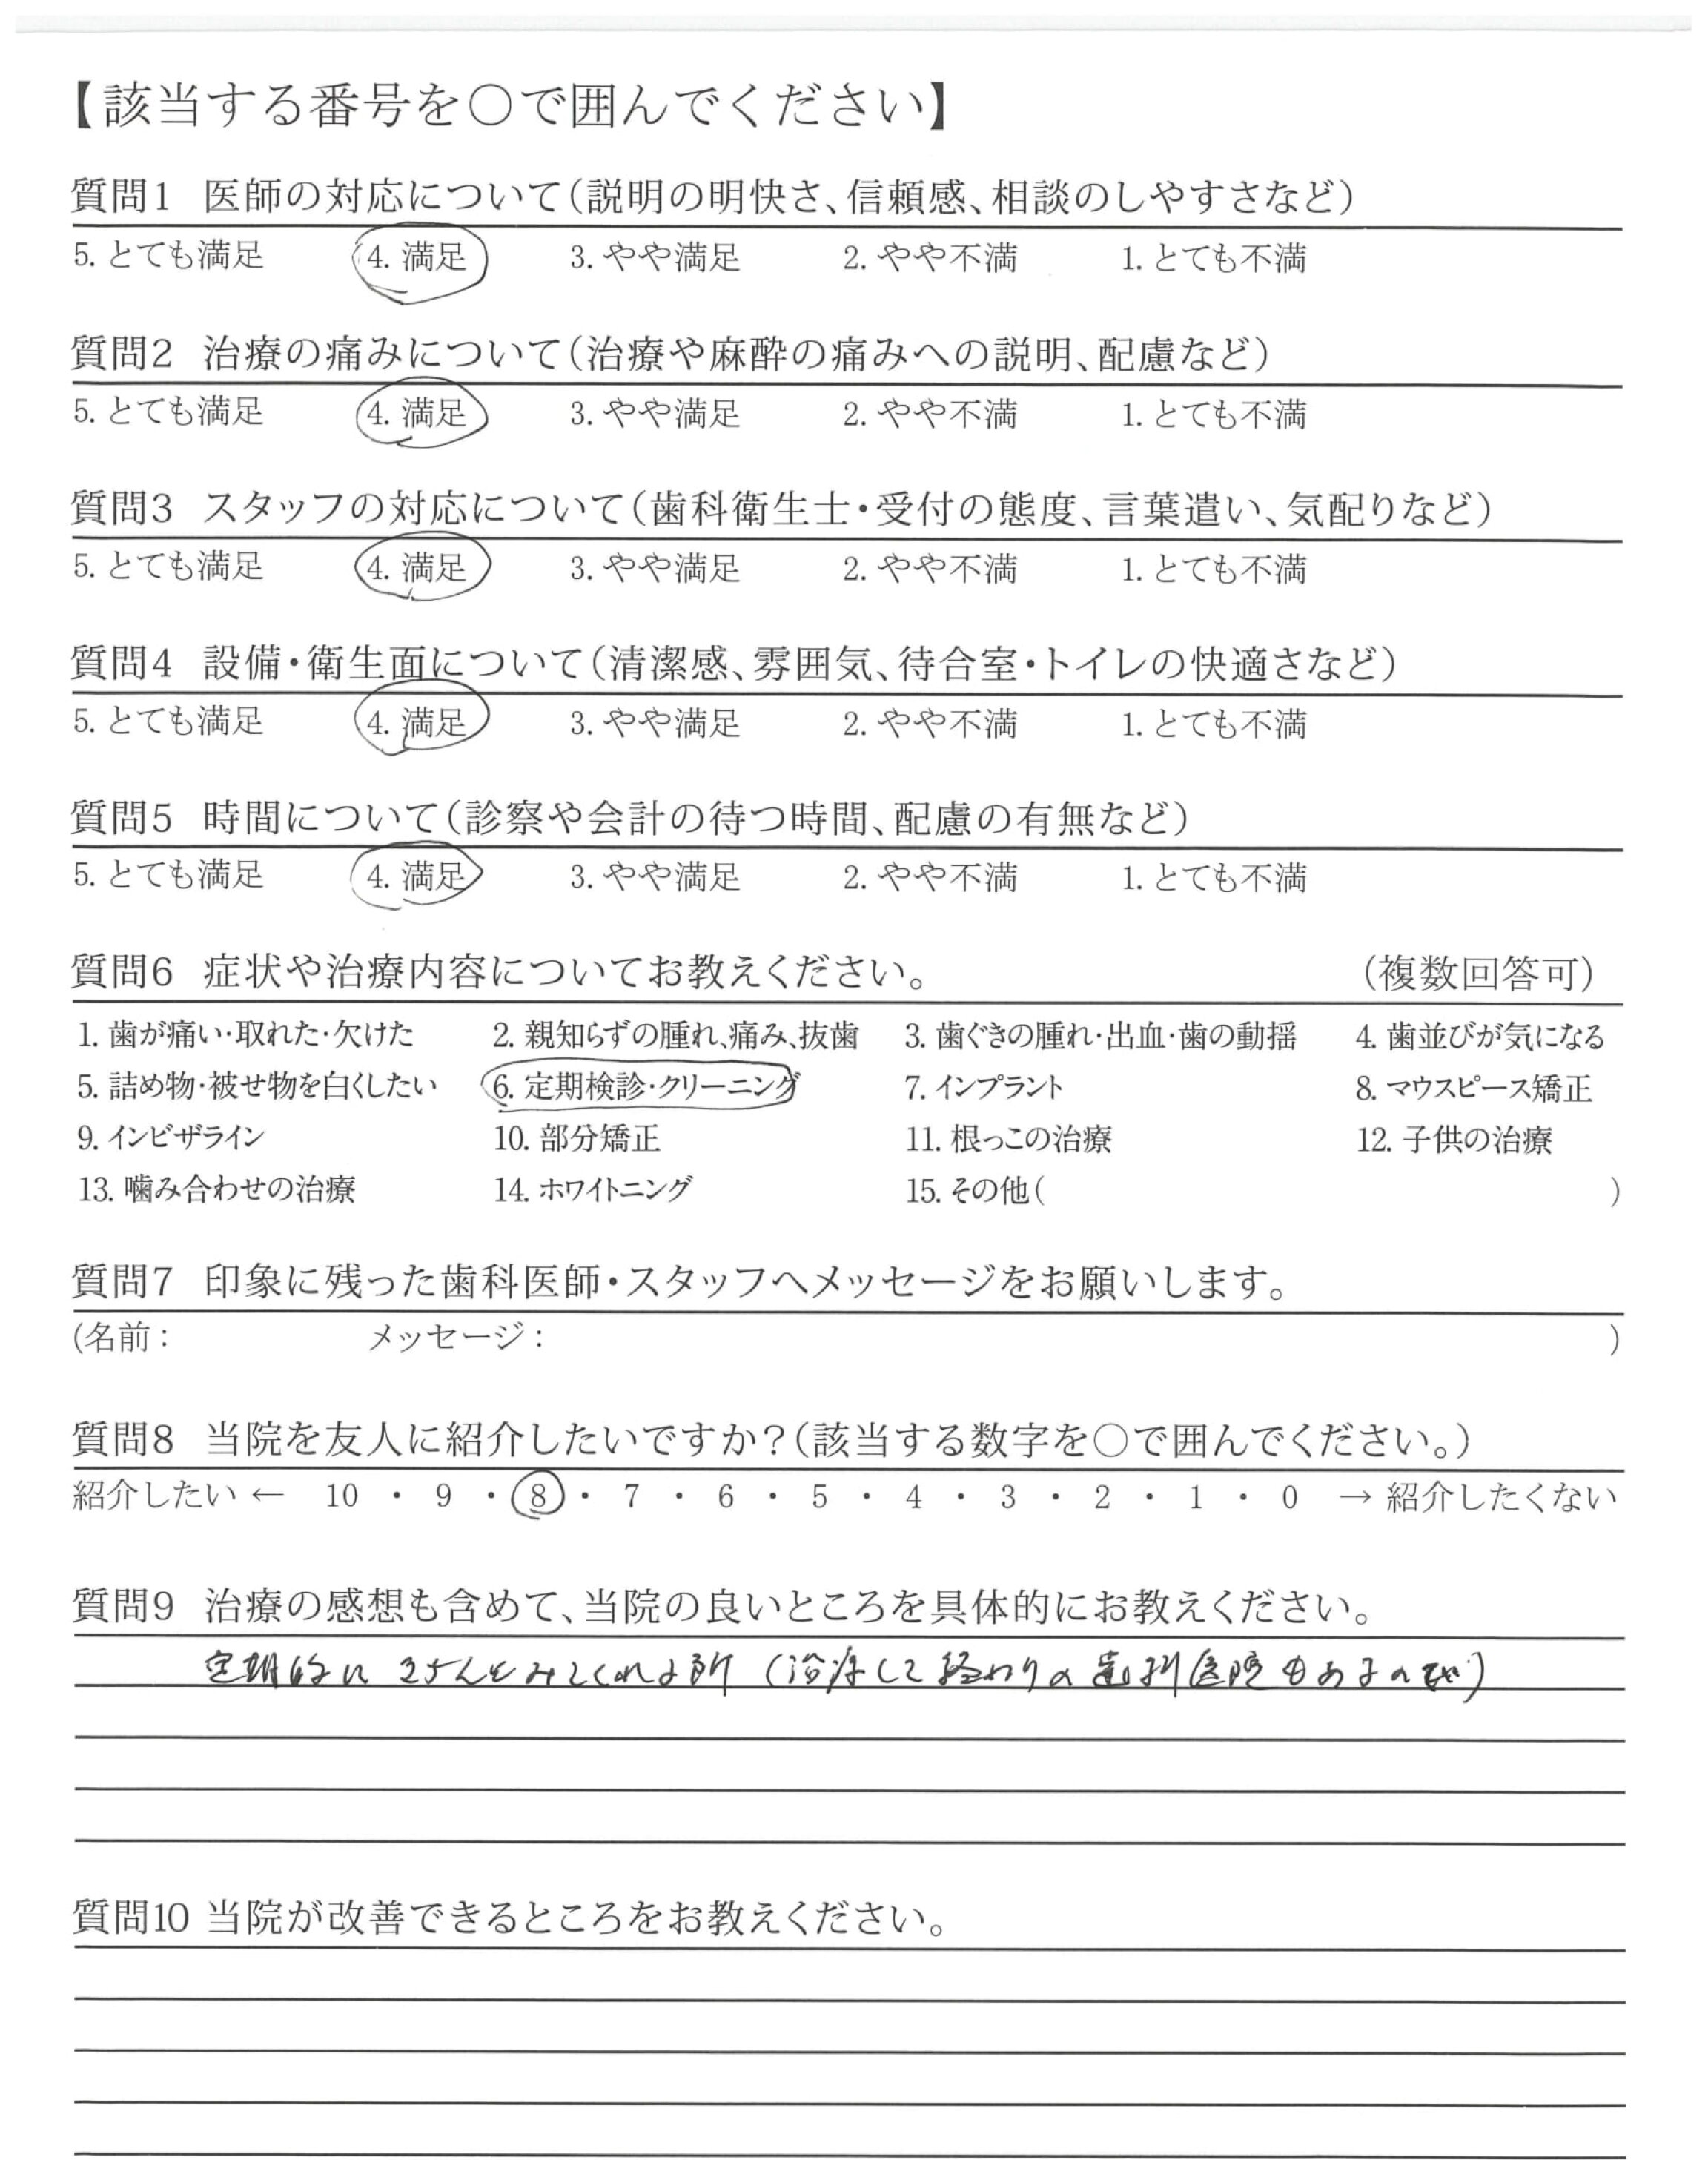 【該当する番号を○で囲んでください】
質問1 医師の対応について(説明の明快さ、信頼感、相談のしやすさなど)
5. とても満足 4. 満足 3. やや満足 2. やや不満 1. とても不満
質問2 治療の痛みについて(治療や麻酔の痛みへの説明、配慮など)
5. とても満足 4. 満足 3. やや満足 2. やや不満 1. とても不満
質問3 スタッフの対応について(歯科衛生士・受付の態度、言葉遣い、気配りなど)
5. とても満足 4. 満足 3. やや満足 2. やや不満 1. とても不満
質問4 設備・衛生面について(清潔感、雰囲気、待合室・トイレの快適さなど)
5. とても満足 4. 満足 3. やや満足 2. やや不満 1. とても不満
質問5 時間について(診察や会計の待つ時間、配慮の有無など)
5. とても満足 4. 満足 3. やや満足 2. やや不満 1. とても不満
質問6 症状や治療内容についてお教えください。 (複数回答可)
1. 歯が痛い・取れた・欠けた 2. 親知らずの腫れ、痛み、抜歯 3. 歯ぐきの腫れ・出血・歯の動揺 4. 歯並びが気になる
5. 詰め物・被せ物を白くしたい 6. 定期検診・クリーニング 7. インプラント 8. マウスピース矯正
9. インビザライン 10. 部分矯正 11. 根っこの治療 12. 子供の治療
13. 噛み合わせの治療 14. ホワイトニング 15. その他( )
質問7 印象に残った歯科医師・スタッフへメッセージをお願いします。
(名前: メッセージ: )
質問8 当院を友人に紹介したいですか?(該当する数字を○で囲んでください。)
紹介したい ← 10 ・ 9 ・ 8 ・ 7 ・ 6 ・ 5 ・ 4 ・ 3 ・ 2 ・ 1 ・ 0 → 紹介したくない
質問9 治療の感想も含めて、当院の良いところを具体的にお教えください。
定期的にきちんとみてくれる所(治療して終わりの歯科医院もあるので)
質問10 当院が改善できるところをお教えください。